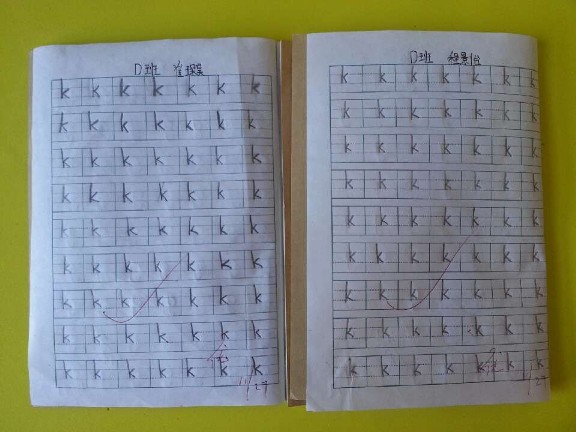 D班
k k k k k k k
k k k k k k k
k k k k k k k
k k k k k k k
k k k k k k k
k k k k k k k
k k k k k k k
k k k k k k k
k k k k k k k
11/27
D班
k k k k k k k
k k k k k k k
k k k k k k k
k k k k k k k
k k k k k k k
k k k k k k k
k k k k k k k
k k k k k k k
k k k k k k k